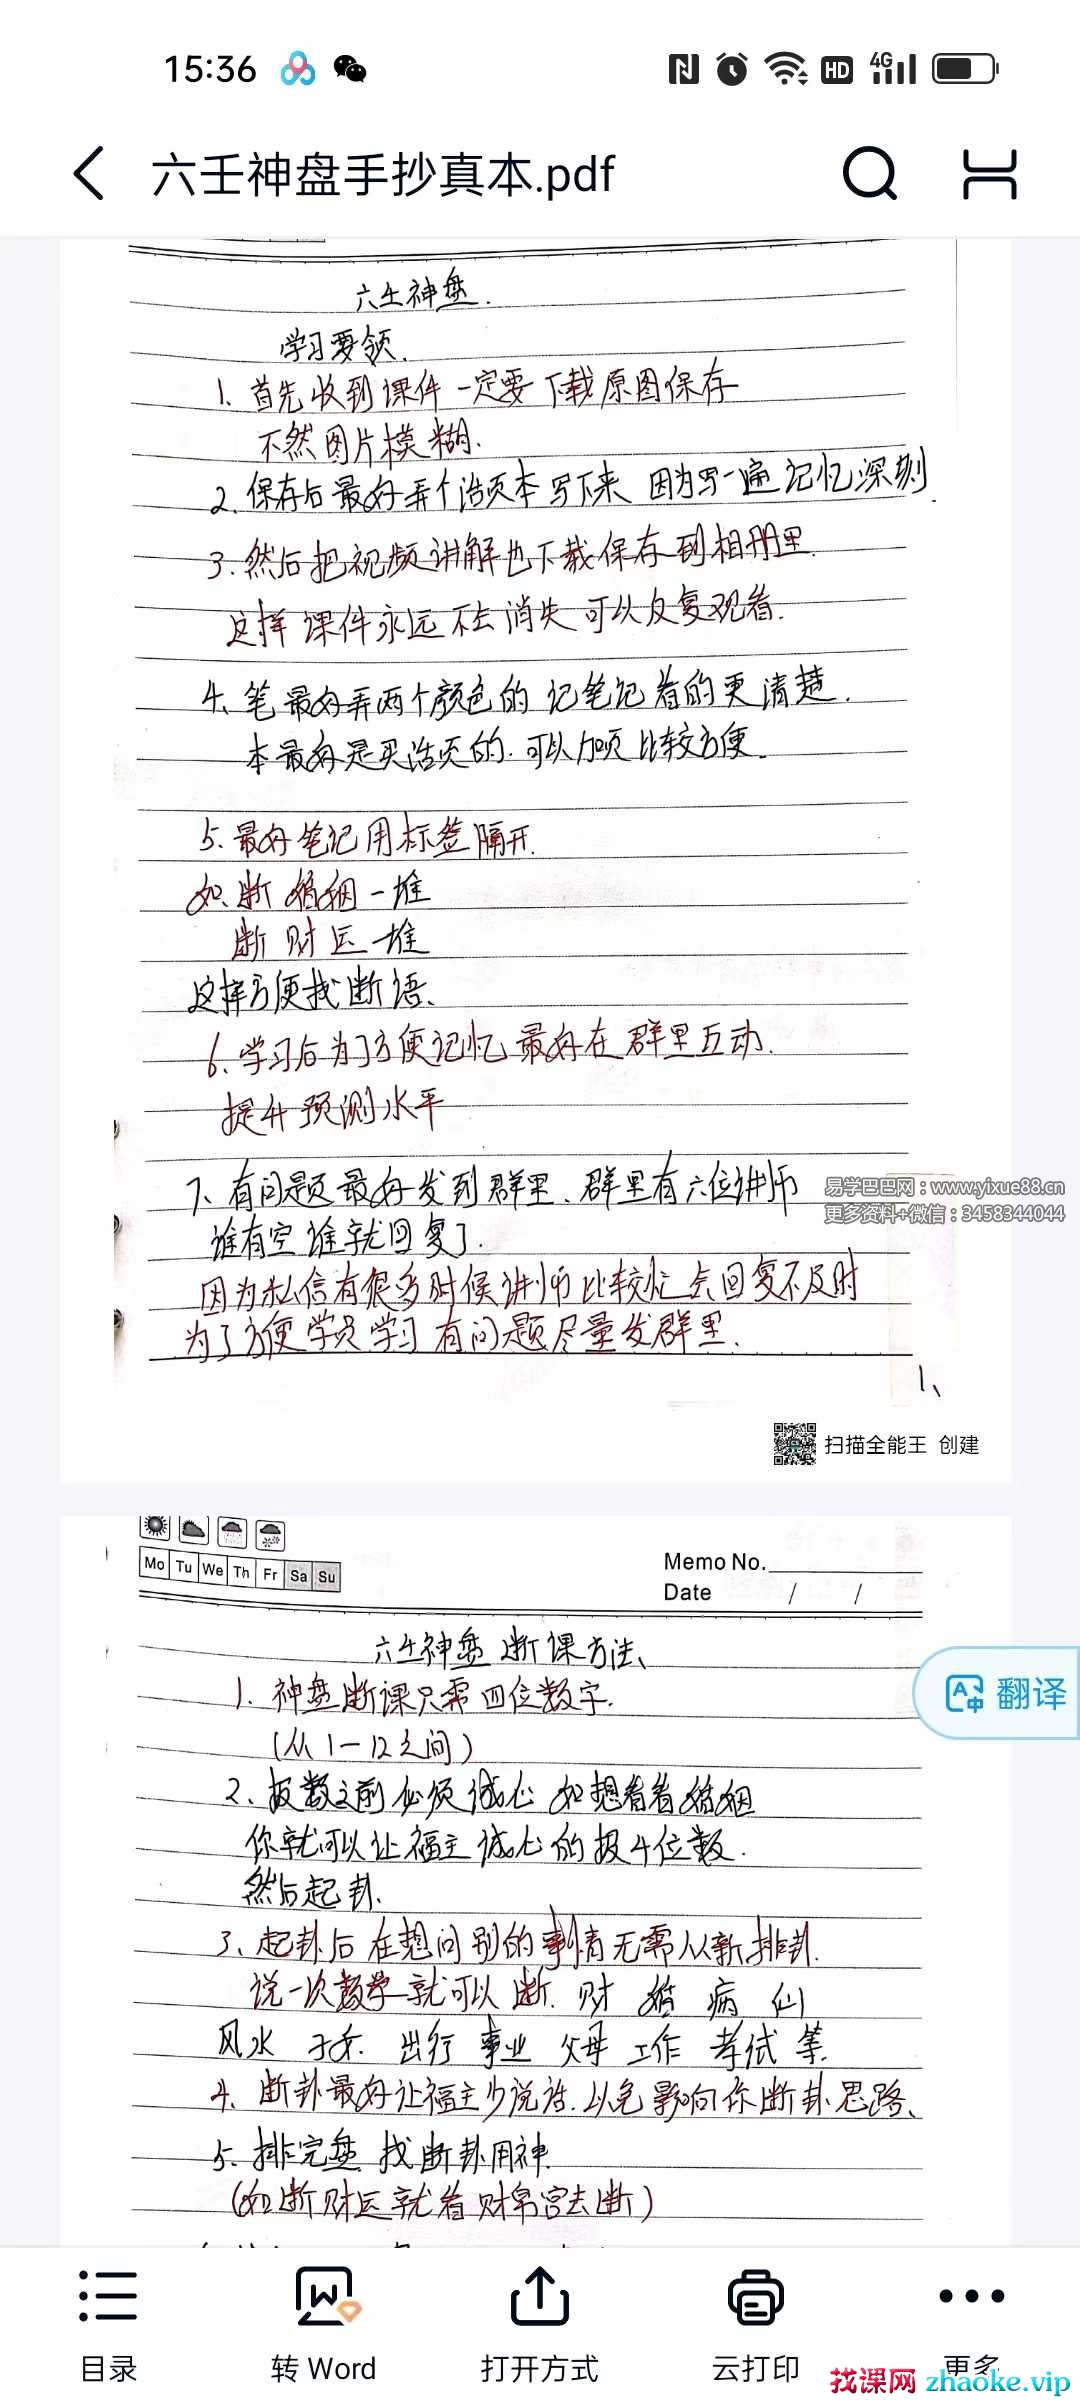 15:36
HD 4G
六壬神盘手抄真本.pdf
六壬神盘.
学习要领.
1、首先收到课件一定要下载原图保存
不然图片模糊.
2、保存后最好弄个活页本写下来 因为写一遍记忆深刻.
3.然后把视频讲解也下载保存到相册里.
这样课件永远不会消失可以反复观看.
4、笔最好弄两个颜色的 记笔记看的更清楚.
本最好是买活页的.可以加页比较方便.
5.最好笔记用标签隔开.
如.断婚姻一堆
断财运一堆
这样方便找断语、
6.学习后为了方便记忆最好在群里互动.
提升预测水平
7、有问题最好发到群里、群里有六位讲师
谁有空谁就回复了.
因为私信有很多时候讲师比较忙会回复不及时
为了方便学员学习有问题尽量发群里.
易学巴巴网：www.yixue88.cn
更多资料+微信：3458344044
1、
扫描全能王 创建
Mo Tu We Th Fr Sa Su
Memo No.
Date / /
六壬神盘断课方法、
1. 神盘断课只需四位数字.
(从1—12之间)
2、报数之前必须诚心 如想看看婚姻
你就可以让福主诚心的报4位数.
然后起卦.
3、起卦后在想问别的事情无需从新排卦.
说一次数字就可以断. 财 婚 病 仙
风水 子女. 出行 事业 父母 工作 考试 等.
4、断卦最好让福主少说话.以免影响你断卦思路、
5、排完盘.找断卦用神.
(如断财运就看财帛宫去断)
翻译
目录
转 Word
打开方式
云打印
更多
找课网 zhaoke.vip